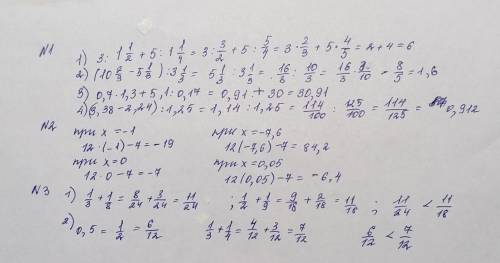 N1
1) 3 : 1 1/2 + 5 : 1 1/4 = 3 : 3/2 + 5 : 5/4 = 3 · 2/3 + 5 · 4/5 = 2 + 4 = 6
2) (10 2/3 - 5 1/3) : 3 1/3 = 5 1/3 : 3 1/3 = 16/3 : 10/3 = 16/3 · 3/10 = 8/5 = 1,6
3) 0,7 · 1,3 + 5,1 : 0,17 = 0,91 + 30 = 30,91
4) (3,38 - 2,24) : 1,25 = 1,14 : 1,25 = 114/100 : 125/100 = 114/125 = 0,912
N2
при x = -1 при x = -7,6
12 · (-1) - 7 = -19 12(-7,6) - 7 = 84,2
при x = 0 при x = 0,05
12 · 0 - 7 = -7 12(0,05) - 7 = -6,4
N3 1) 1/3 + 1/8 = 8/24 + 3/24 = 11/24 ; 1/2 + 1/9 = 9/18 + 2/18 = 11/18 ; 11/24 < 11/18
2) 0,5 = 1/2 = 6/12 1/3 + 1/4 = 4/12 + 3/12 = 7/12 6/12 < 7/12